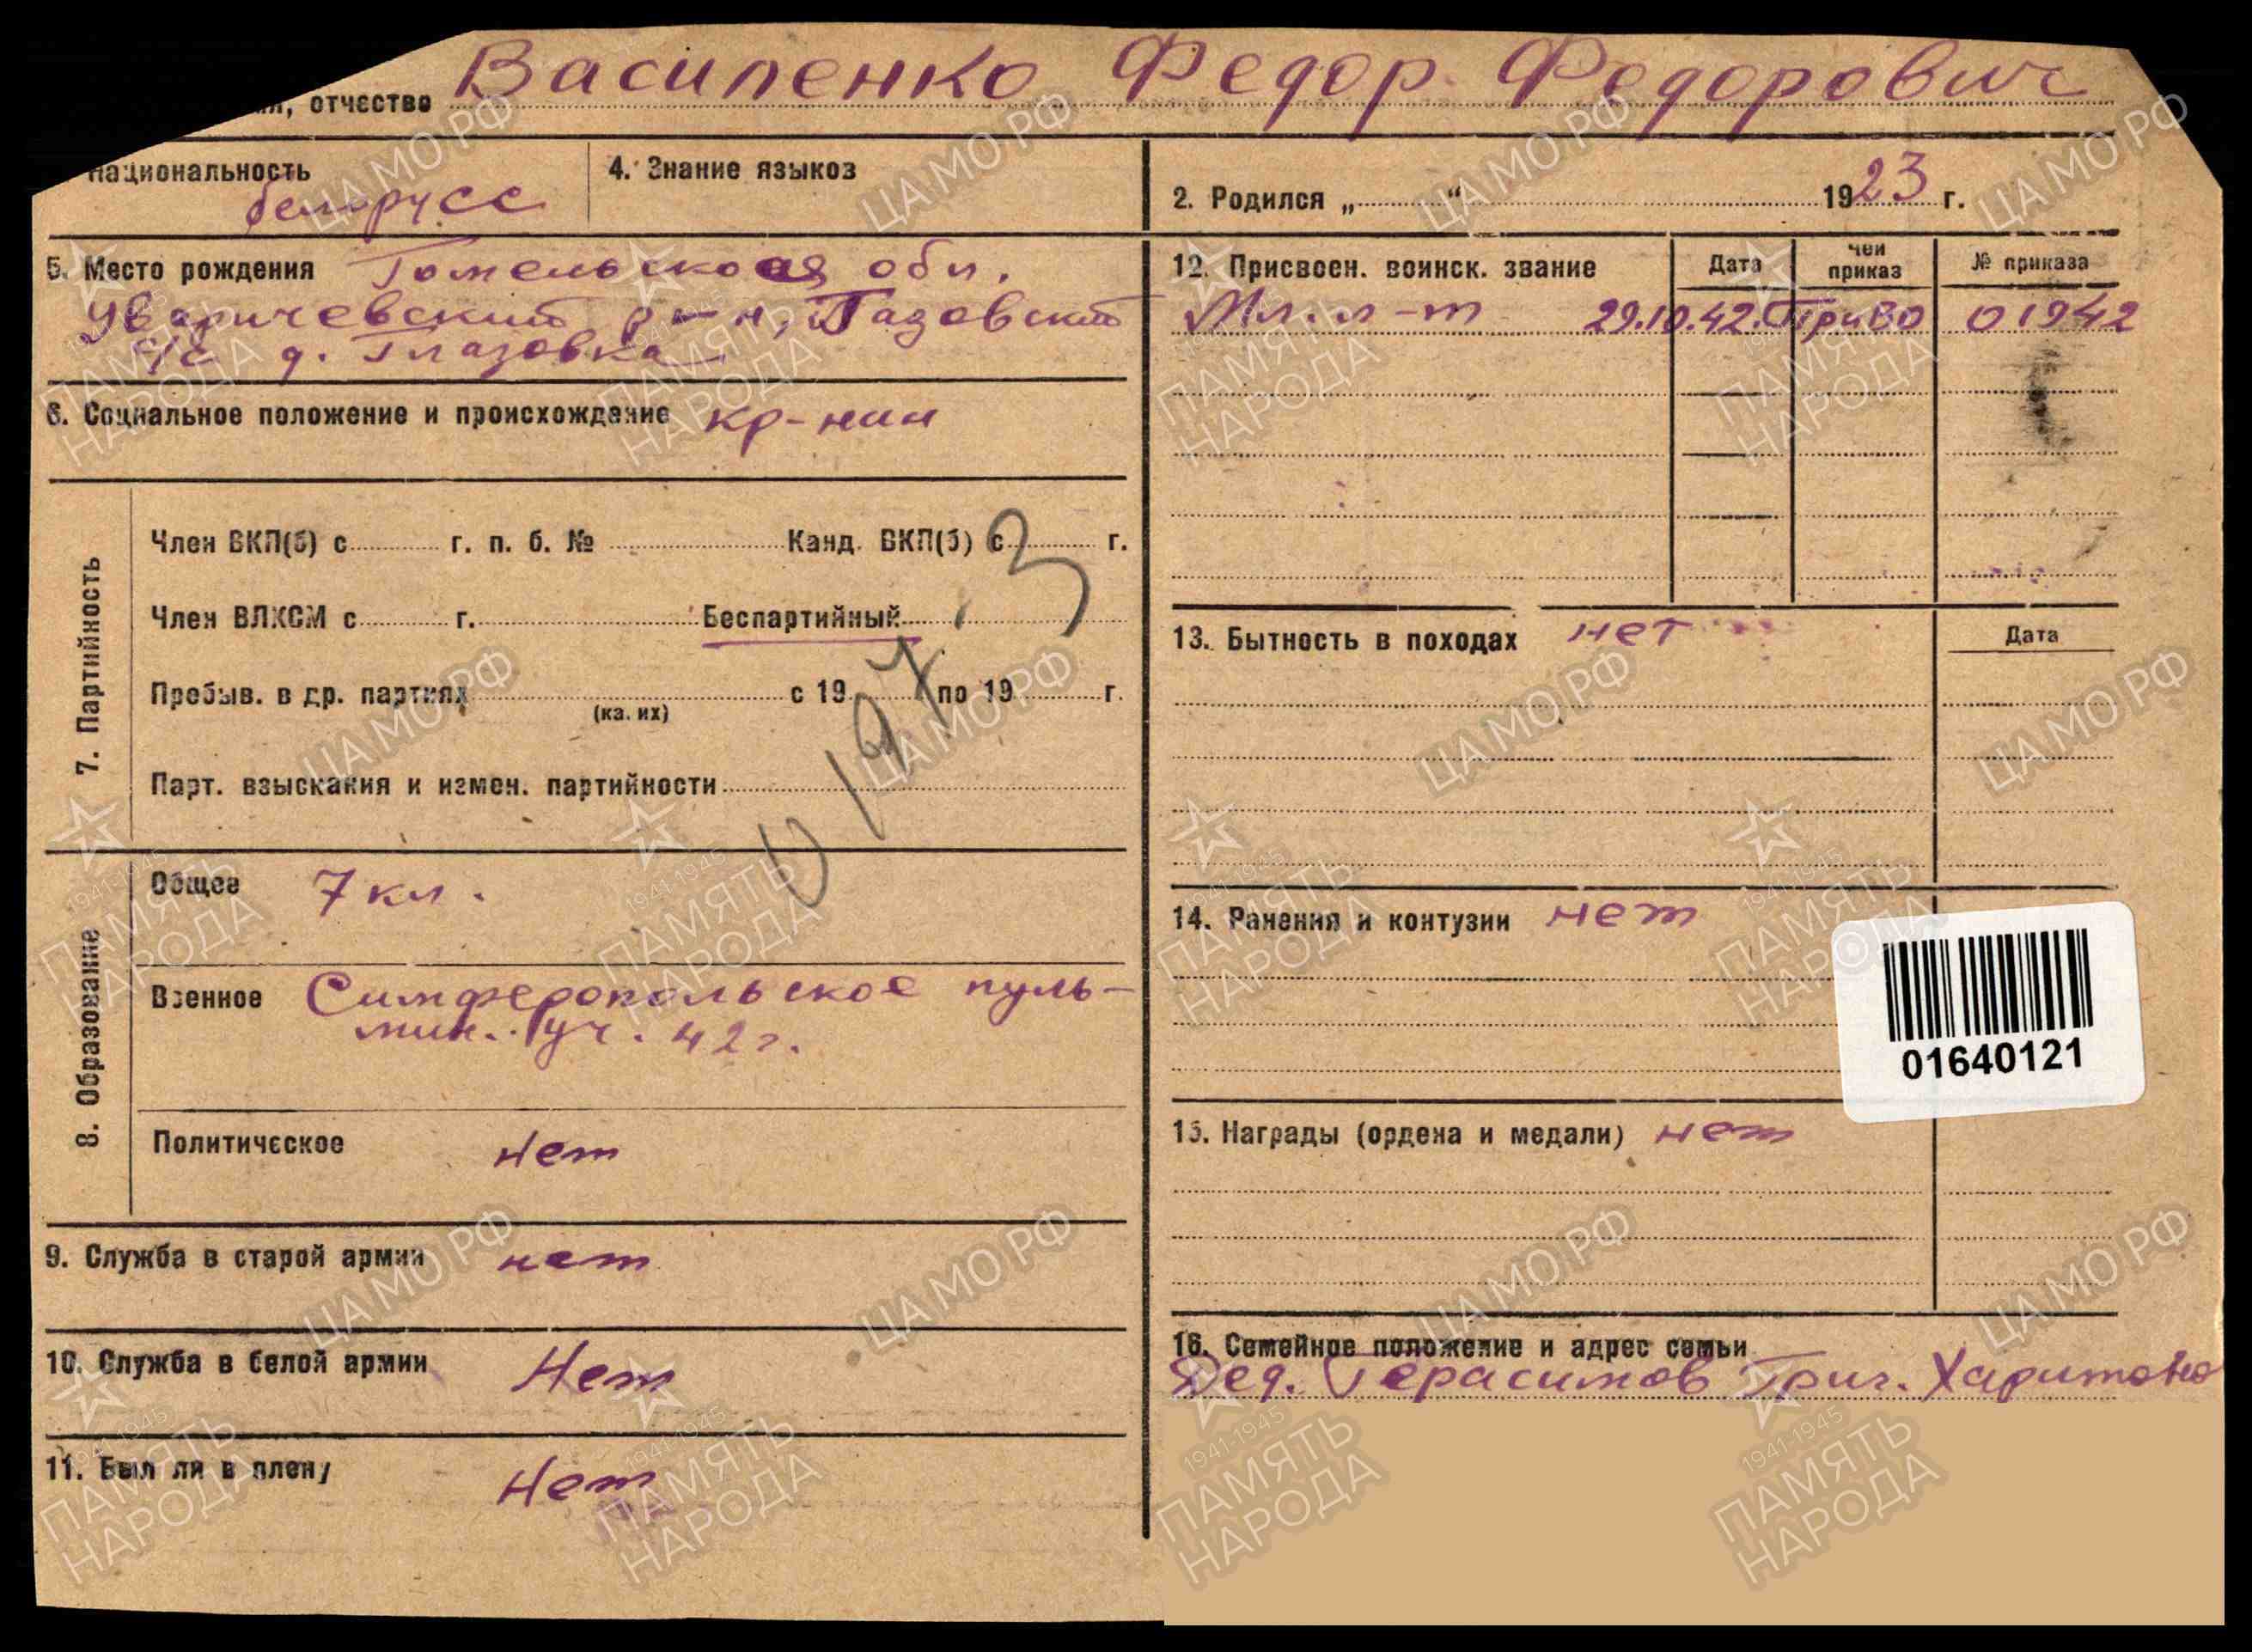 отчество Василенко Федор Федорович
Национальность белорусс
4. Знание языков
2. Родился „ “ 1923 г.
5. Место рождения Гомельская обл.
Уваричевский р-н, Глазовский
с/с д. Глазовка
6. Социальное положение и происхождение кр-нин
7. Партийность
Член ВКП(б) с г. п. б. № Канд. ВКП(б) с г.
Член ВЛКСМ с г. Беспартийный
Пребыв. в др. партиях с 19 по 19 г.
(ка. их)
Парт. взыскания и измен. партийности
8. Образование
Общее 7 кл.
Военное Симферопольское пуль-
мин. уч. 42 г.
Политическое нет
9. Служба в старой армии нет
10. Служба в белой армии Нет
11. Был ли в плену Нет
12. Присвоен. воинск. звание Дата Чей приказ № приказа
Мл. л-т 29.10.42. ПриВО 01942
13. Бытность в походах нет Дата
14. Ранения и контузии нет
01640121
15. Награды (ордена и медали) нет
16. Семейное положение и адрес семьи
Дед. Герасимов Григ. Харитоно
ЦАМО РФ
1941-1945
ПАМЯТЬ
НАРОДА